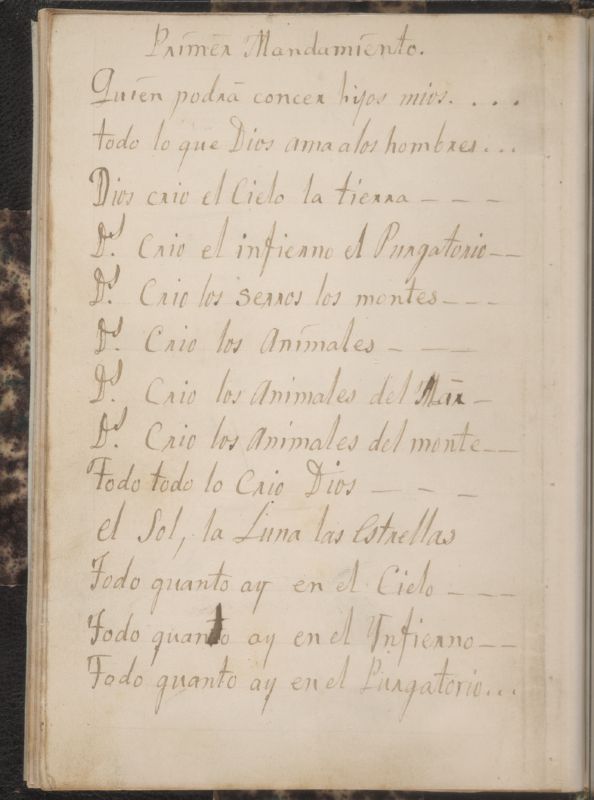 Primer Mandamiento.
Quien podrā concer hijos mios. . . .
todo lo que Dios ama alos hombres...
Dios crio el Cielo la tierra - - -
Ds. Crio el infierno el Purgatorio--
Ds. Crio los serros los montes---
Ds. Crio los Animales - - -
Ds. Crio los Animales del Mar -
Ds. Crio los Animales del monte--
Todo todo lo Crio Dios - - -
el Sol, la Luna las Estrellas
Todo quanto ay en el Cielo - - -
Todo quanto ay en el Ynfierno--
Todo quanto ay en el Purgatorio...